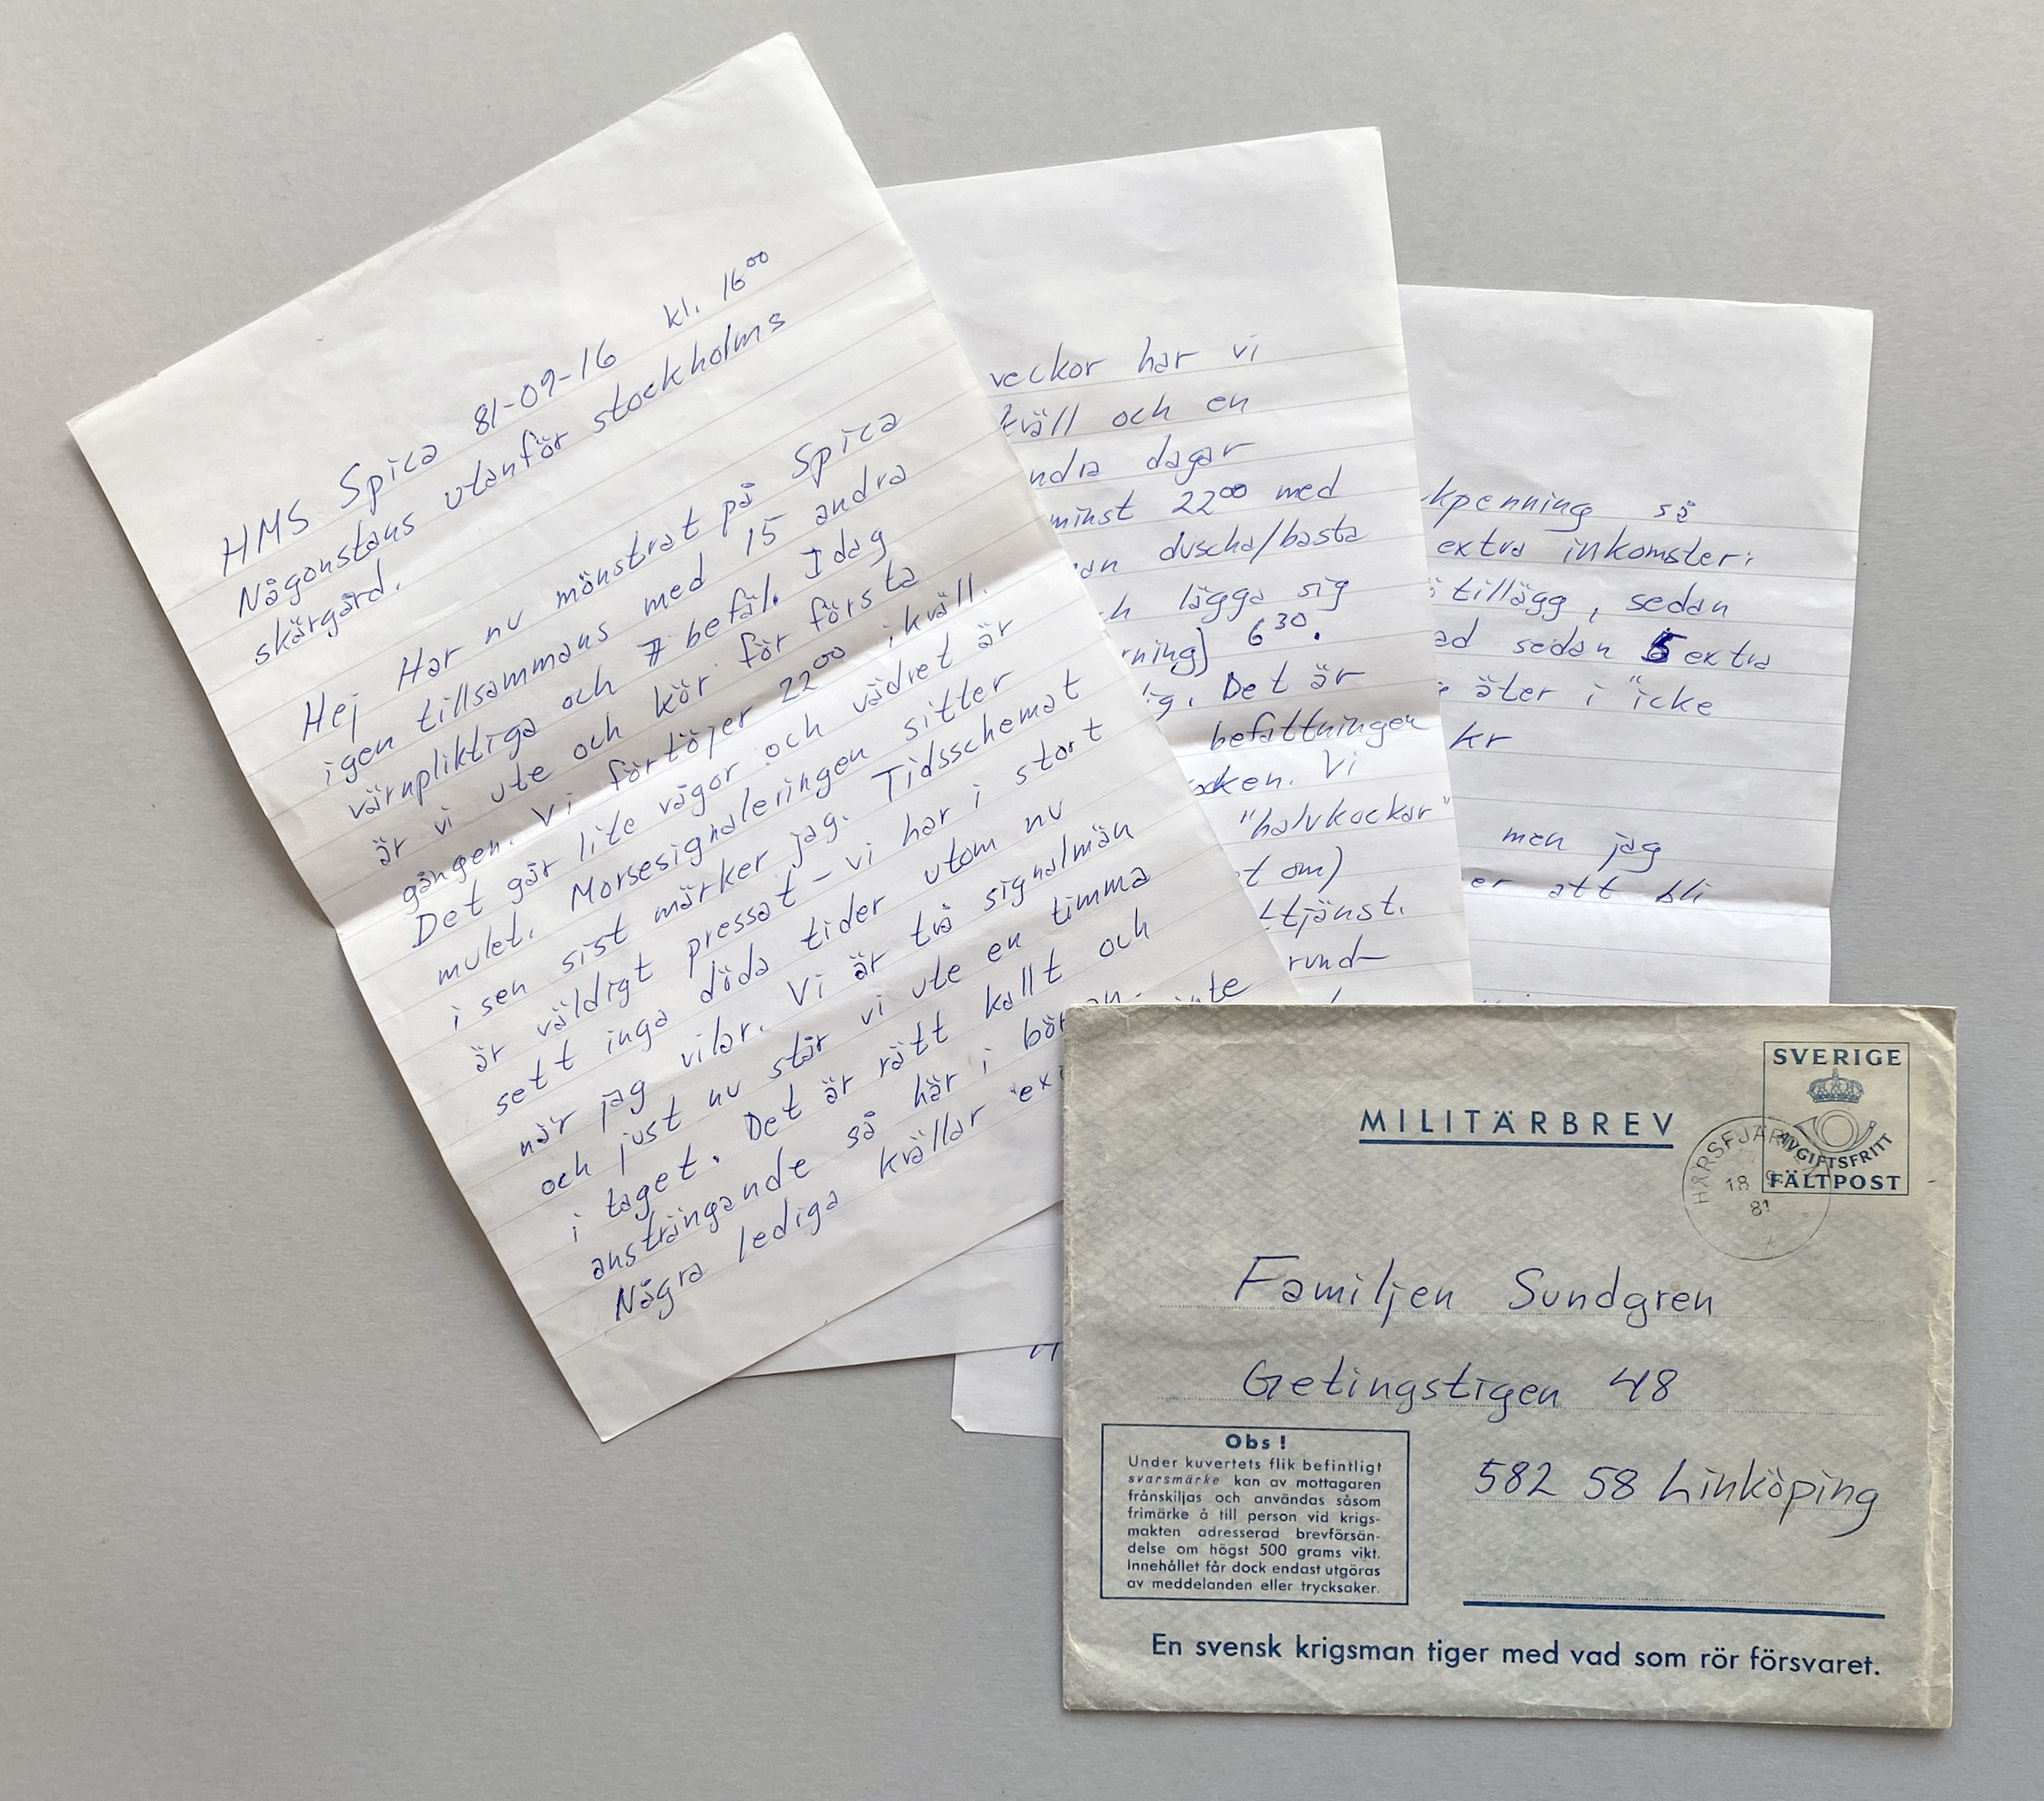 HMS Spica 81-09-16 kl. 16⁰⁰
Någonstans utanför stockholms
skärgård.
Hej Har nu mönstrat på Spica
igen tillsammans med 15 andra
värnpliktiga och 7 befäl. Idag
är vi ute och kör för första
gången. Vi förtöjer 22⁰⁰ ikväll.
Det går lite vågor och vädret är
mulet. Morsesignaleringen sitter
i sen sist märker jag. Tidsschemat
är väldigt pressat - vi har i stort
sett inga döda tider utom nu
när jag vilar. Vi är två signalmän
och just nu står vi ute en timma
i taget. Det är rätt kallt och
ansträngande så här i
Några lediga kvällar
veckor har vi
kväll och en
dagar
minst 22⁰⁰ med
duscha/basta
lägga sig
6³⁰.
Det är
befattningen
Vi
"halvkockar"
om)
rund-
så
extra inkomster:
tillägg, sedan
sedan 5 extra
äter i "icke
kr
men jag
att bli
MILITÄRBREV
SVERIGE
AVGIFTSFRITT
FÄLTPOST
HÅRSFJÄRDEN
18 9
81
Familjen Sundgren
Getingstigen 48
582 58 Linköping
Obs!
Under kuvertets flik befintligt
svarsmärke kan av mottagaren
frånskiljas och användas såsom
frimärke å till person vid krigs-
makten adresserad brevförsän-
delse om högst 500 grams vikt.
Innehållet får dock endast utgöras
av meddelanden eller trycksaker.
En svensk krigsman tiger med vad som rör försvaret.